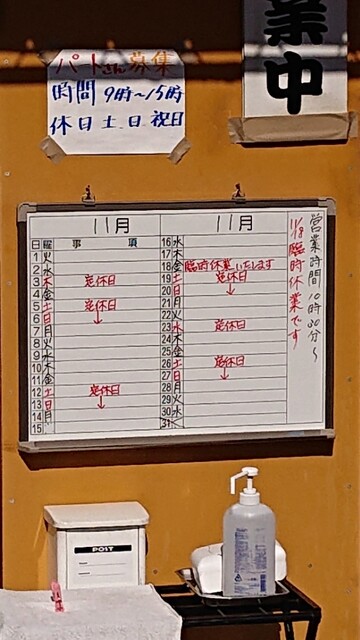 業中
パートさん募集
時間 9時〜15時
休日 土、日、祝日
11月
日 曜 事 項
1 火
2 水
3 木 定休日
4 金
5 土 定休日
6 日 ↓
7 月
8 火
9 水
10 木
11 金
12 土 定休日
13 日 ↓
14 月
15
11月
16 水
17 木
18 金 臨時休業いたします
19 土 定休日
20 日 ↓
21 月
22 火
23 水 定休日
24 木
25 金
26 土 定休日
27 日 ↓
28 月
29 火
30 水
31
営業時間 10時30分〜
11/18 臨時休業です
POST